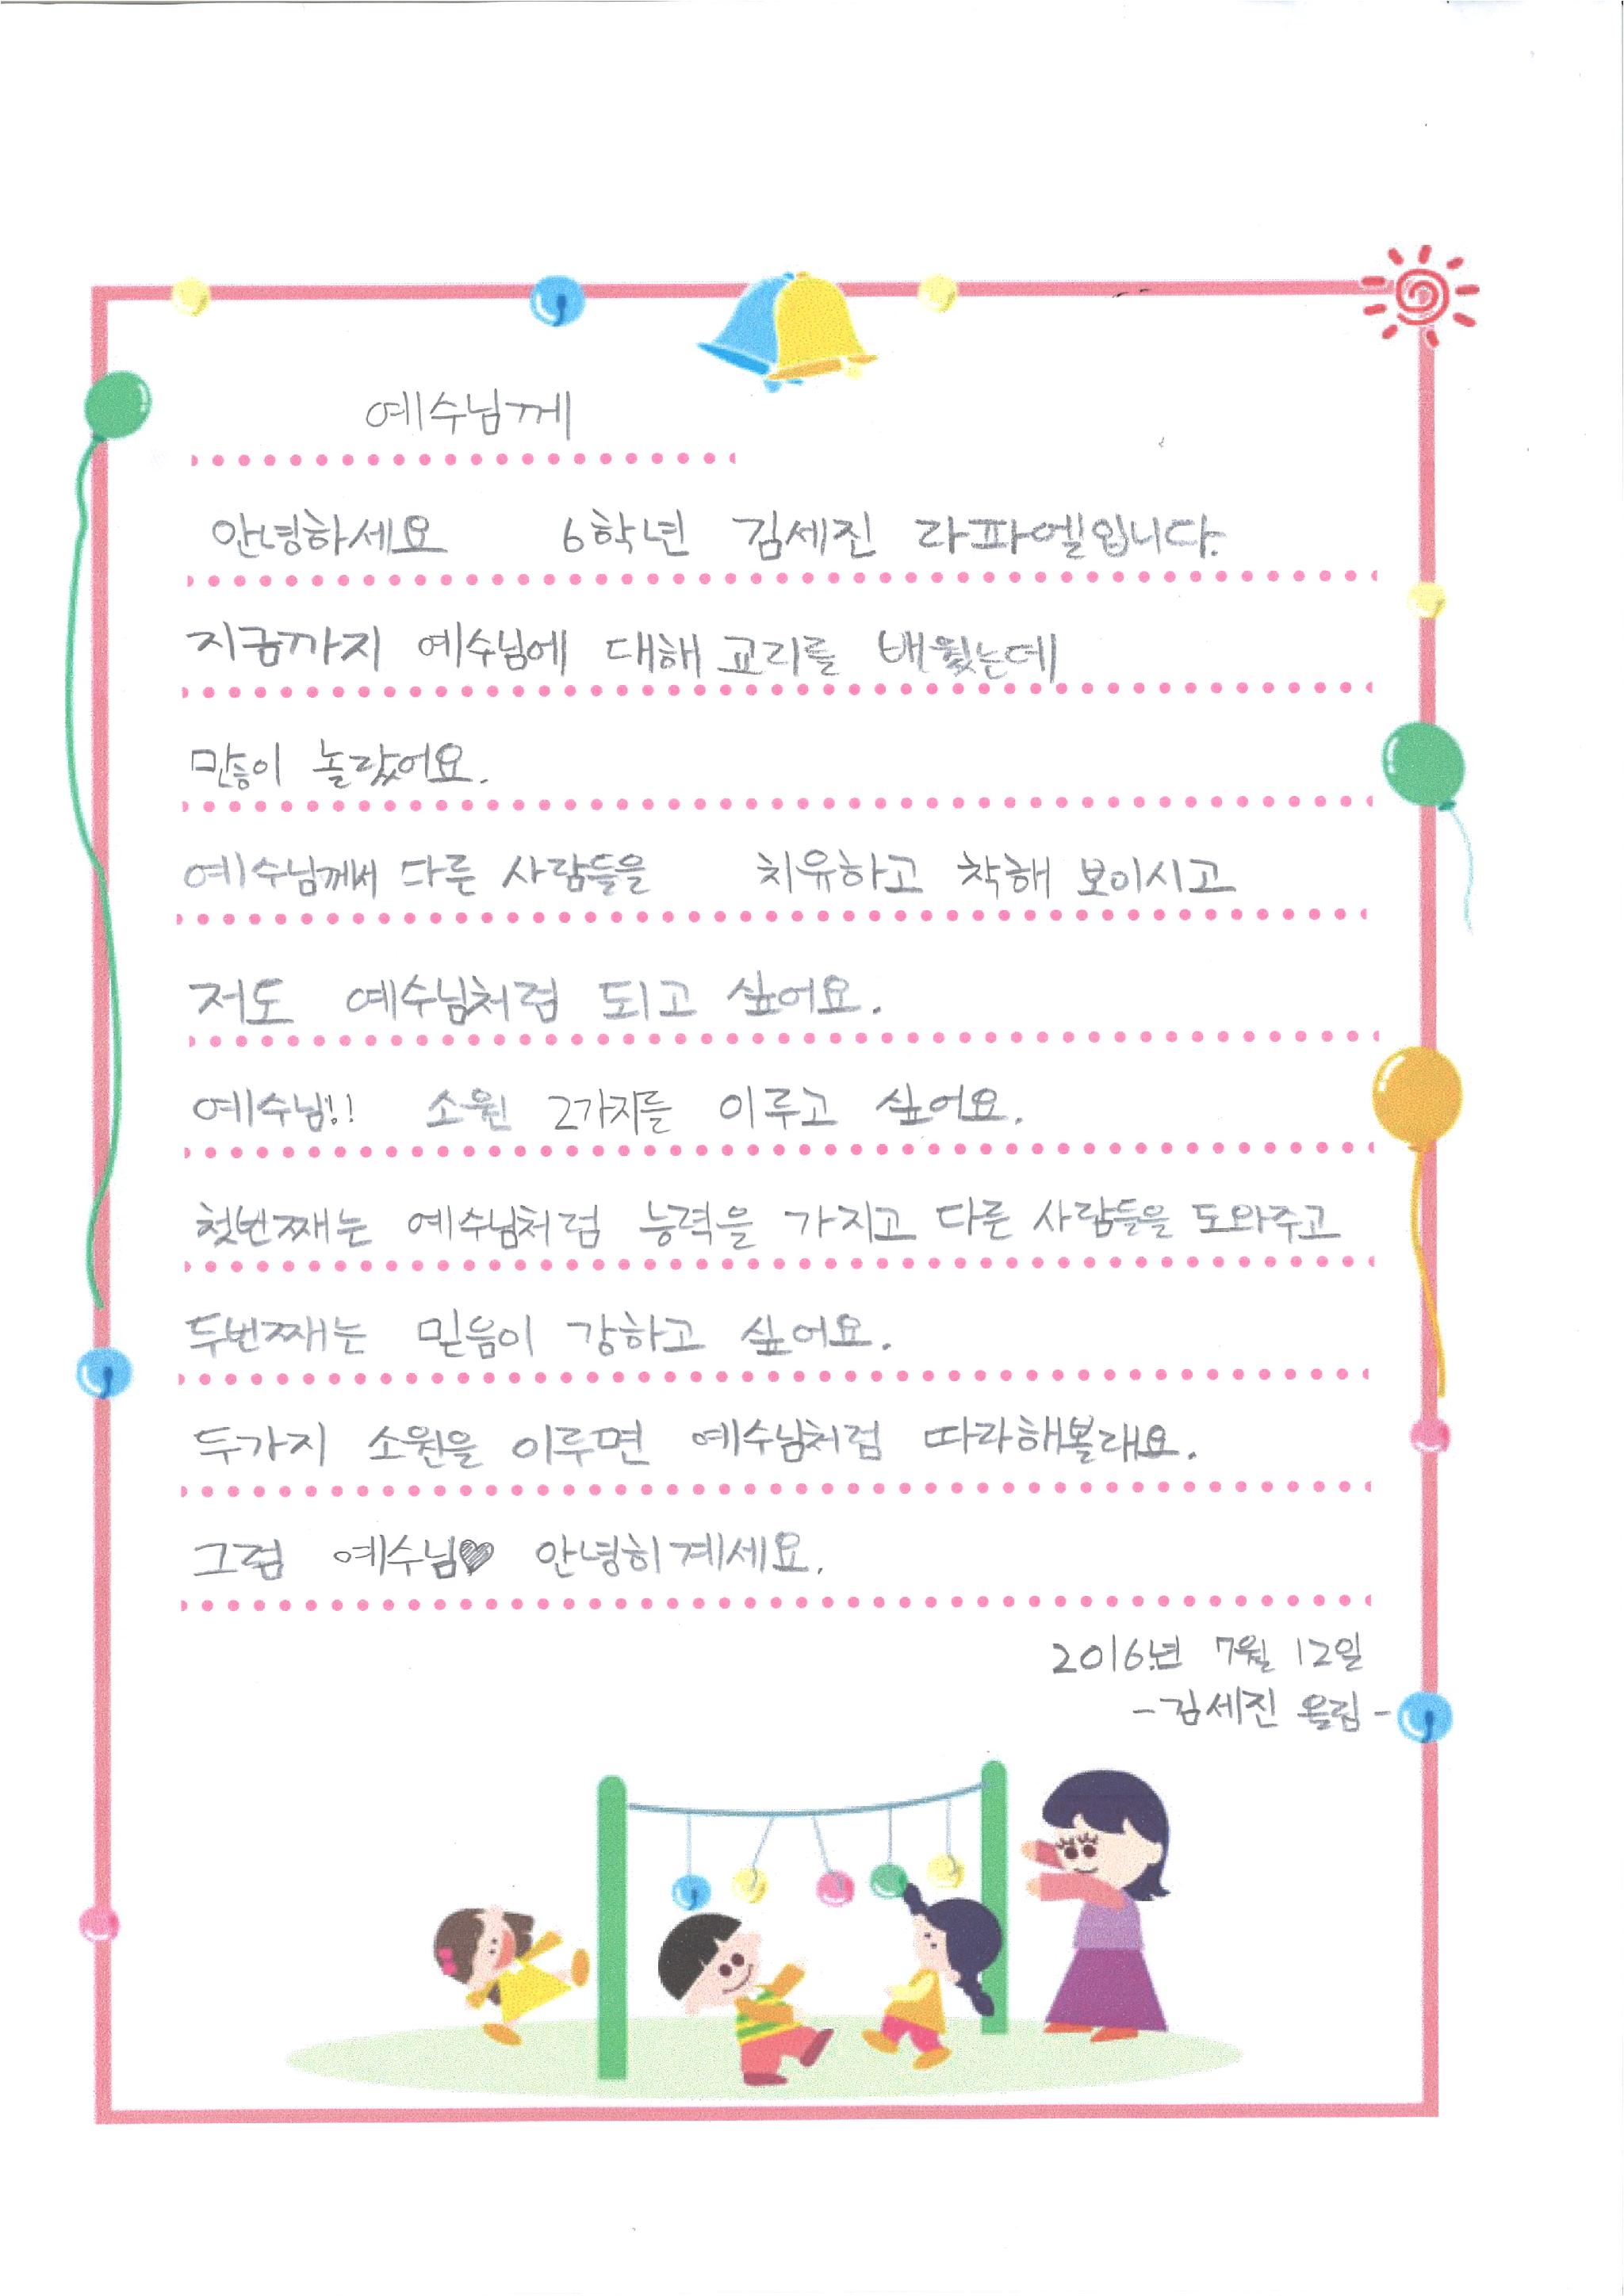 예수님께
안녕하세요 6학년 김세진 라파엘입니다.
지금까지 예수님에 대해 교리를 배웠는데
많이 놀랐어요.
예수님께서 다른 사람들을 치유하고 착해 보이시고
저도 예수님처럼 되고 싶어요.
예수님!! 소원 2가지를 이루고 싶어요.
첫번째는 예수님처럼 능력을 가지고 다른 사람들을 도와주고
두번째는 믿음이 강하고 싶어요.
두가지 소원을 이루면 예수님처럼 따라해볼래요.
그럼 예수님♥ 안녕히계세요.
2016년 7월 12일
-김세진 올림-